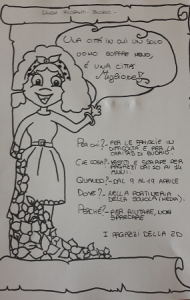 UNA CITTÀ IN CUI UN SOLO
UOMO SOFFRE MENO,
È UNA CITTÀ
MIGLIORE!
PER CHI? - PER LE FAMIGLIE IN
DIFFICOLTÀ E PER LA
CARITAS DI
CHE COSA? - VESTITI E SCARPE PER
RAGAZZI DAI 10 AI 14
ANNI
QUANDO? - DAL 9 AL 19 APRILE
DOVE? - NELLA PORTINERIA
DELLA SCUOLA (MEDIA).
PERCHÉ? - PER AIUTARE, NON
SPRECARE
I RAGAZZI DELLA 2D